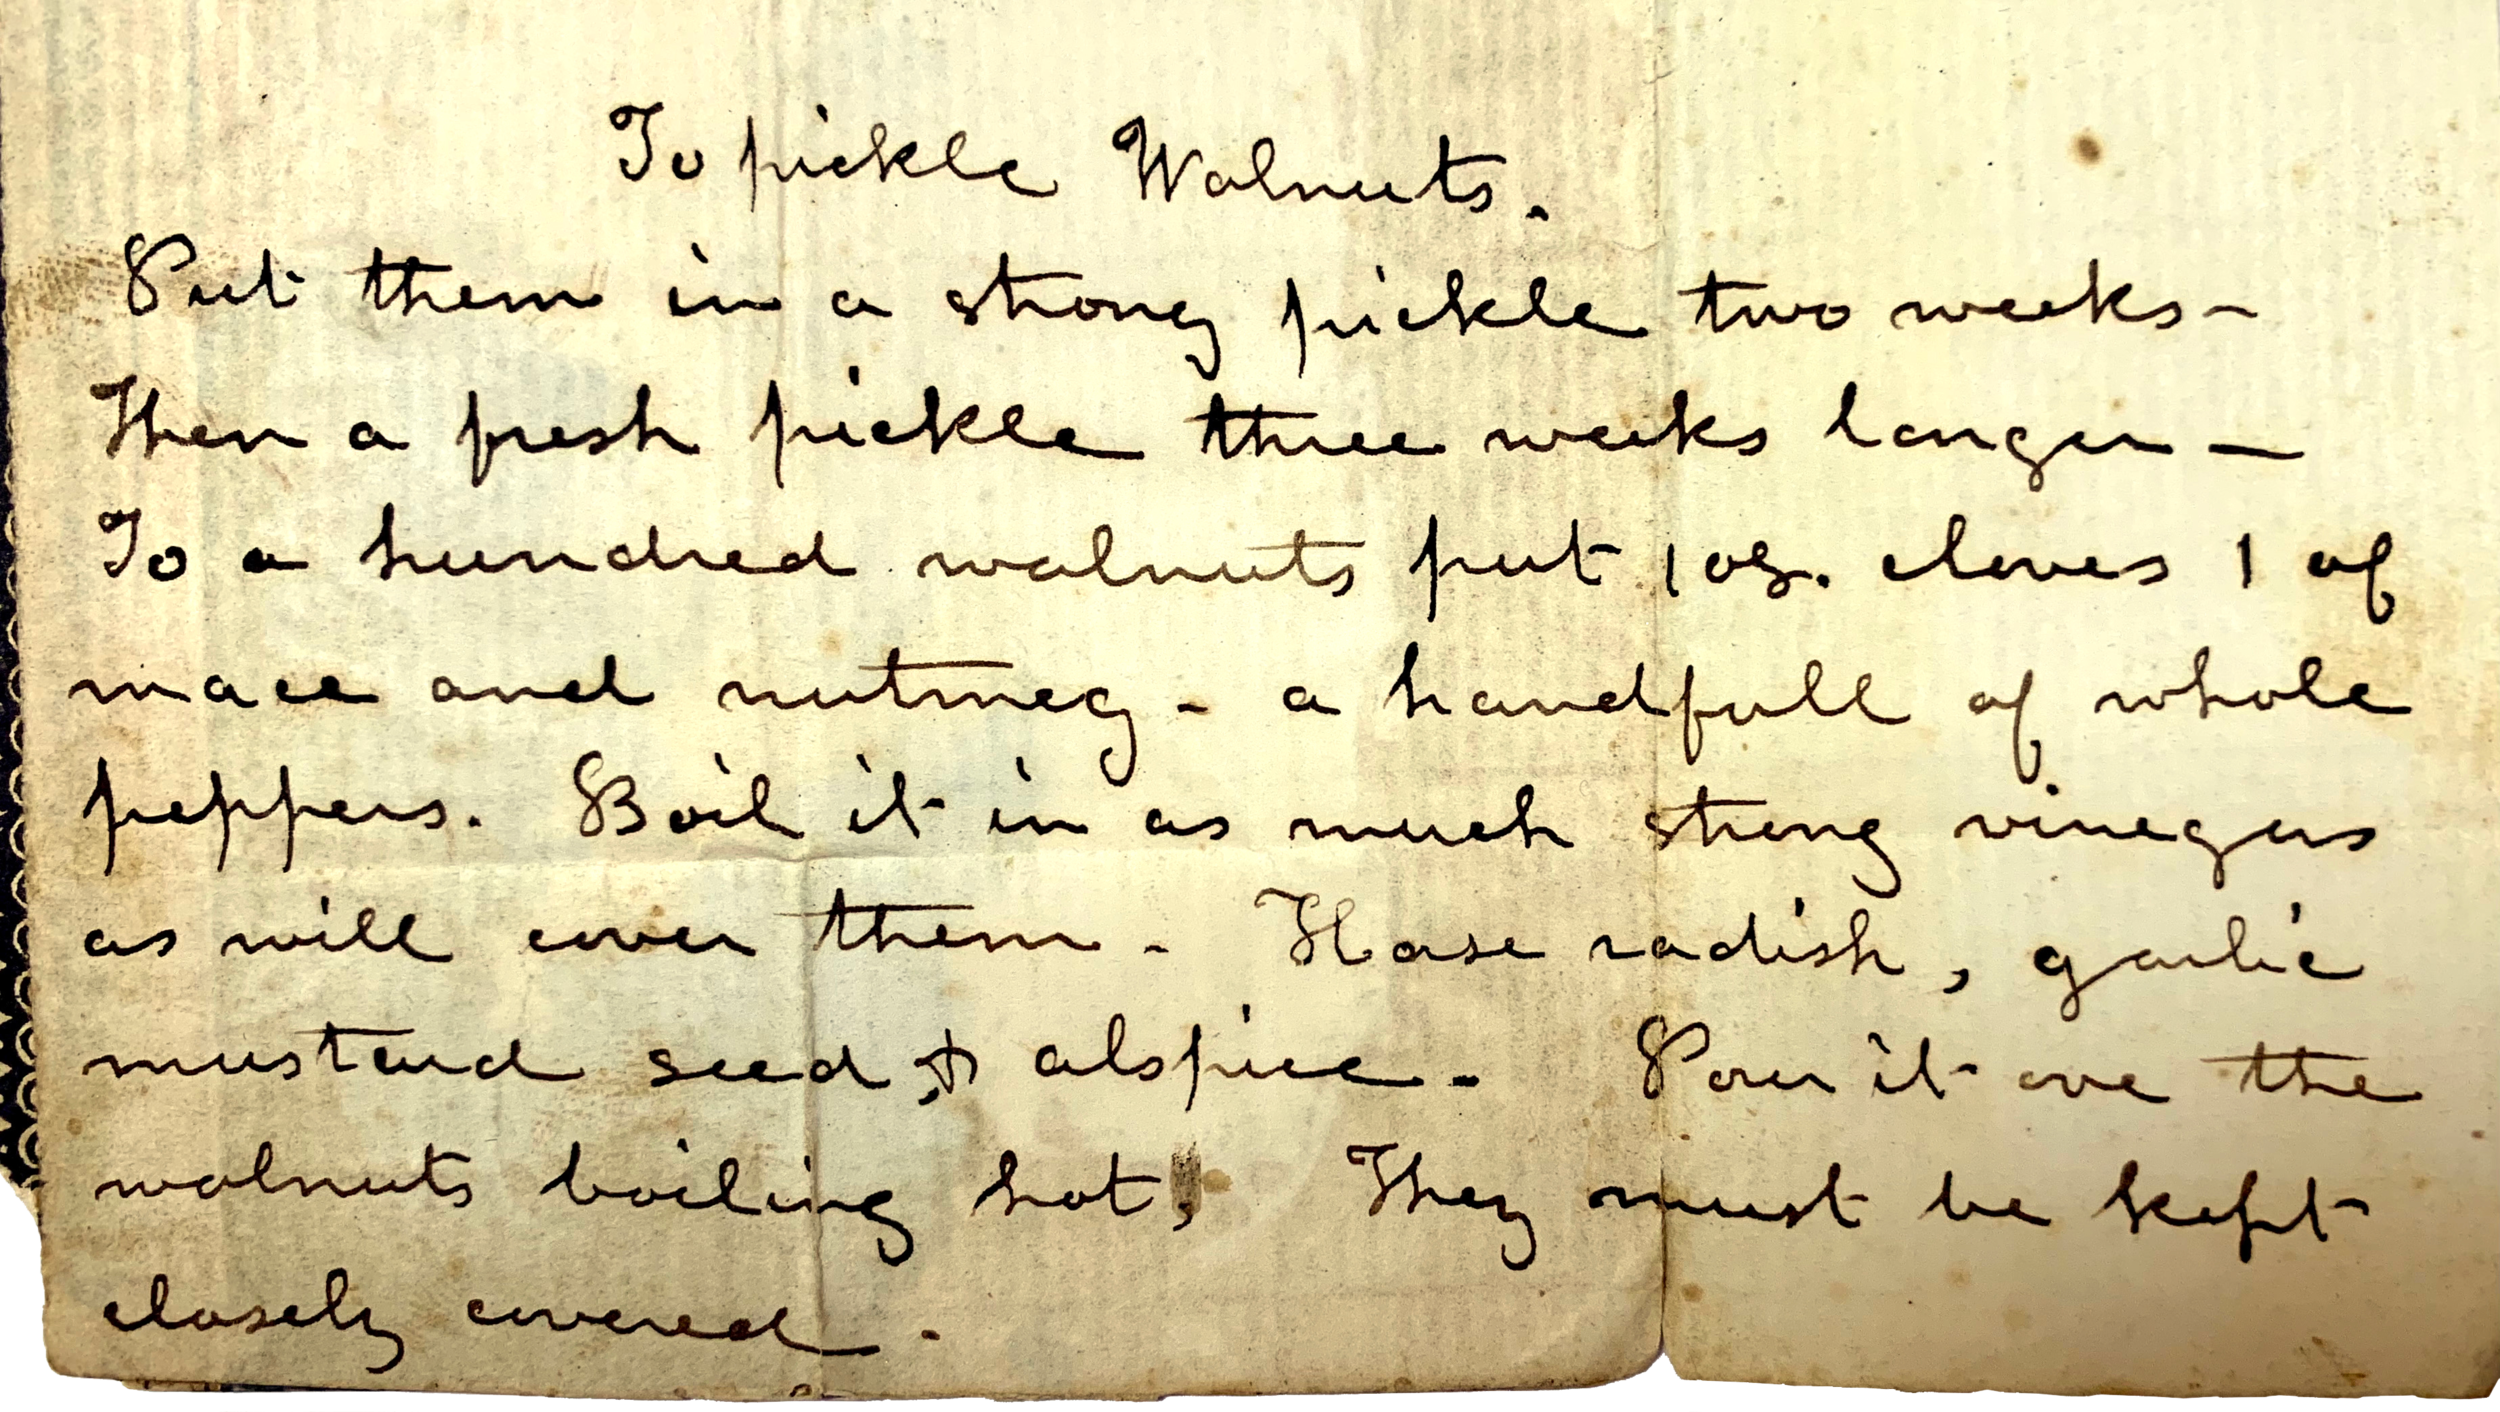 To pickle Walnuts.
Put them in a strong pickle two weeks-
Then a fresh pickle three weeks longer —
To a hundred walnuts put 1 oz. cloves 1 of
mace and nutmeg - a handfull of whole
peppers. Boil it in as much strong vinegar
as will cover them - Horse radish, garlic
mustard seed & alspice - Pour it ove the
walnuts boiling hot. They must be kept
closely covered.